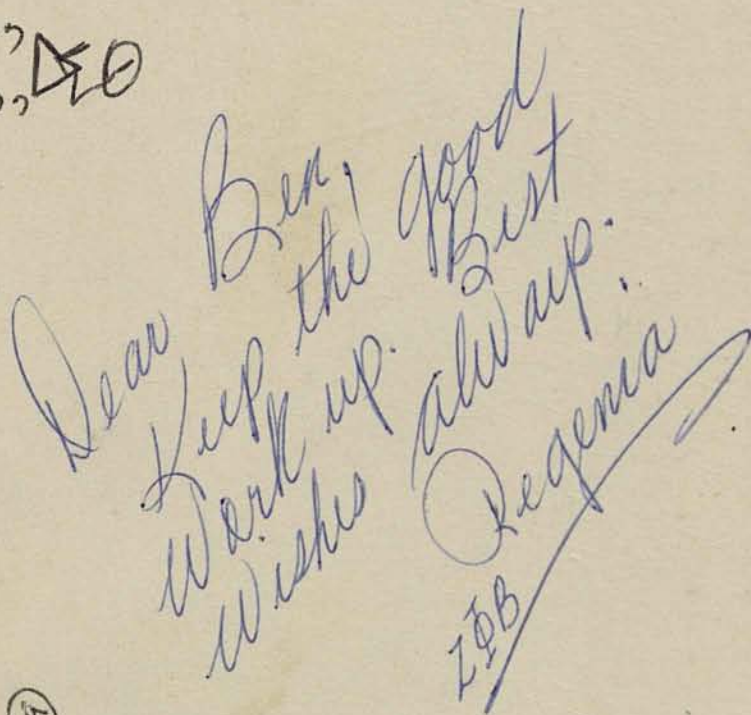 ΔΣΘ
Dear Ben,
Keep the good
Work up. Best
Wishes always.
Regenia
ΖΦΒ